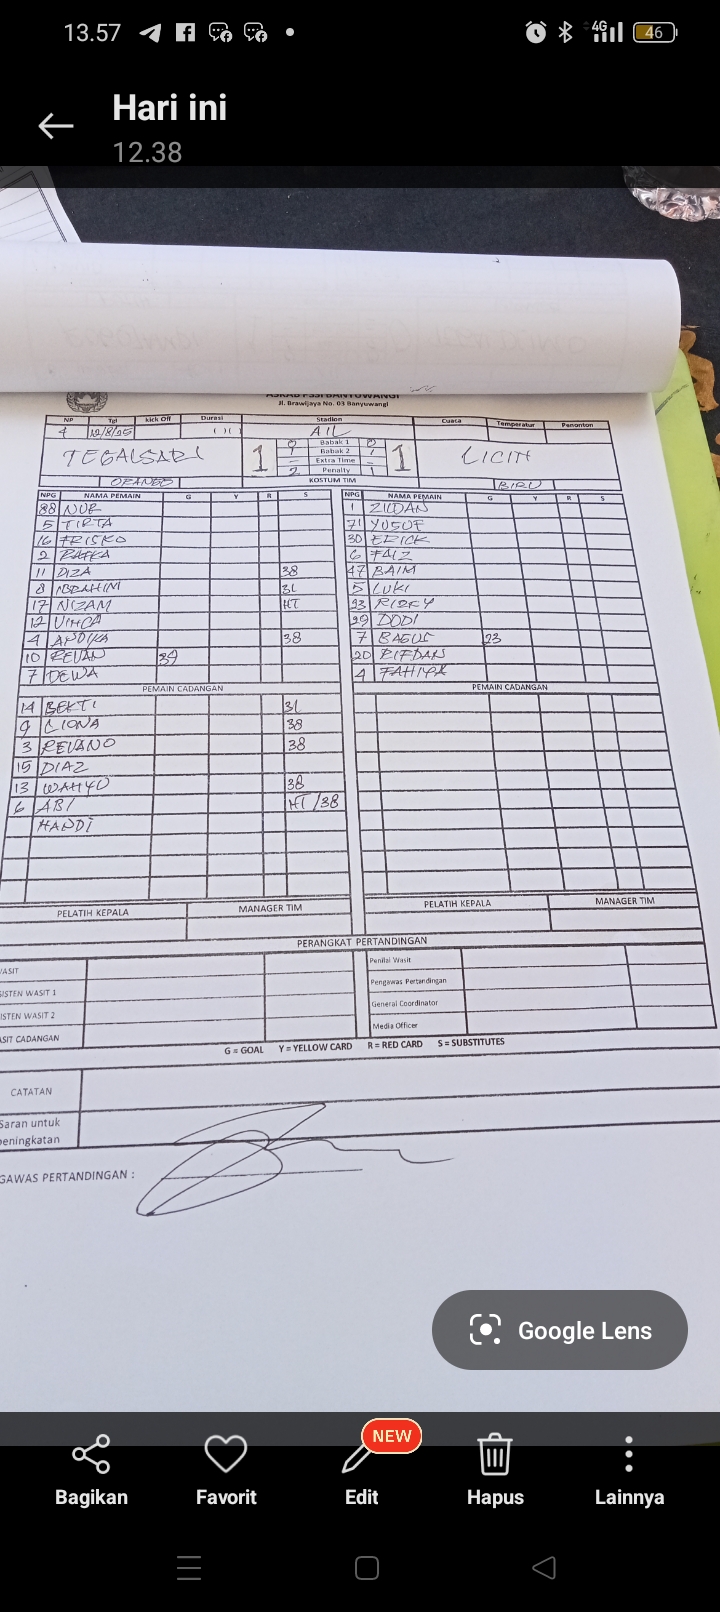 13.57
4G
46
Hari ini
12.38
ASKAB PSSI BANYUWANGI
Jl. Brawijaya No. 03 Banyuwangi
NP Tgl kick Off Durasi Stadion Cuaca Temperatur Penonton
4 AIL
TEGALSARI 1 0 Babak 1 1 LICIN
1 Babak 2 1
- Extra Time -
2 Penalty 1
ORANGE KOSTUM TIM BIRU
NPG NAMA PEMAIN G Y R S NPG NAMA PEMAIN G Y R S
88 NUR 1 ZILDAN
5 TIRTA 71 YUSUF
16 FRISKO 30 ERICK
2 RAFKA 6 FAIZ
11 DIZA 38 47 BAIM
8 IBRAHIM 31 5 LUKI
17 NIZAM HT 93 RIZKY
12 99 DODI
4 ANDIKA 38 7 BAGUS 23
10 REVAN 39 20 RIFDAN
7 DEWA 4
PEMAIN CADANGAN PEMAIN CADANGAN
14 BEKTI 31
9 LIONA 38
3 REVANO 38
15 DIAZ
13 WAHYU 38
6 ABI HT/38
HANDI
PELATIH KEPALA MANAGER TIM PELATIH KEPALA MANAGER TIM
PERANGKAT PERTANDINGAN
WASIT Penilai Wasit
ISTEN WASIT 1 Pengawas Pertandingan
ISTEN WASIT 2 General Coordinator
ASIT CADANGAN Media Officer
G = GOAL Y = YELLOW CARD R = RED CARD S = SUBSTITUTES
CATATAN
Saran untuk
peningkatan
GAWAS PERTANDINGAN :
Google Lens
NEW
Bagikan Favorit Edit Hapus Lainnya